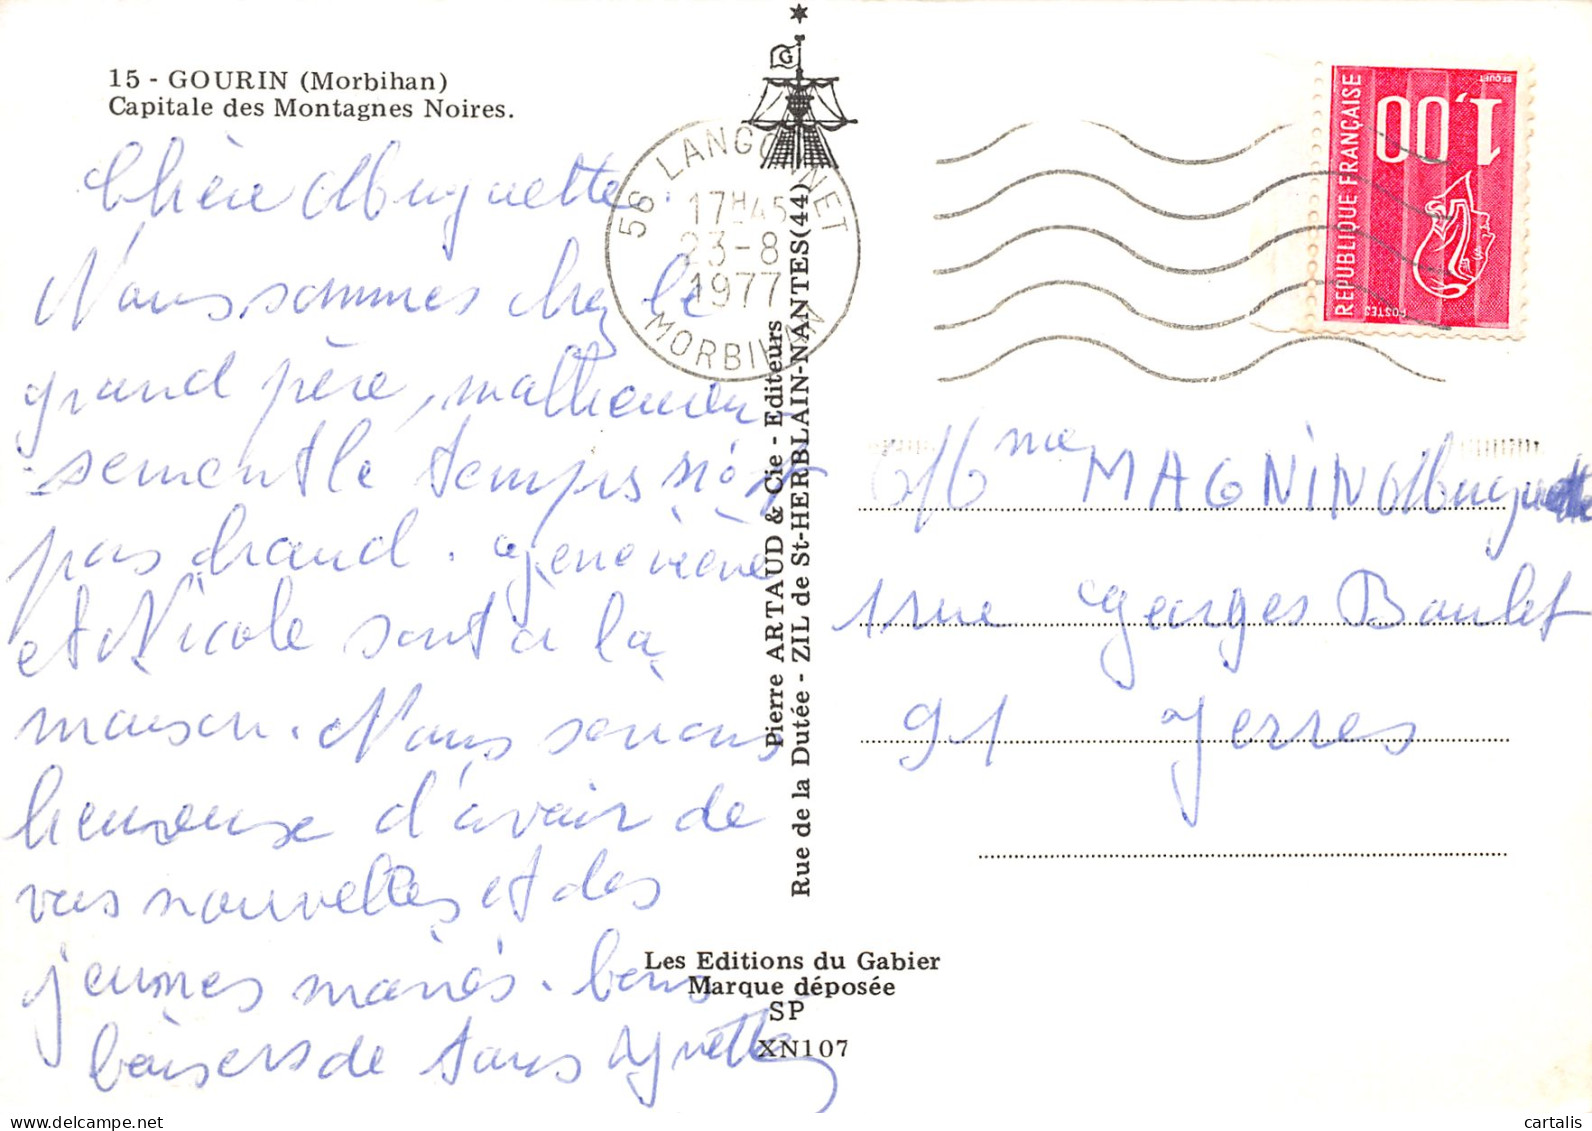 15 - GOURIN (Morbihan)
Capitale des Montagnes Noires.
Chère Muguette.
Nous sommes chez le
grand père, malheureu-
sement le temps n'est
pas chaud. Geneviève
et Nicole sont à la
maison. Nous serions
heureux d'avoir de
vos nouvelles et des
jeunes mariés. bons
baisers de tous
G
56 LANGONNET
17H45
23-8
1977
MORBIHAN
Pierre ARTAUD & Cie - Editeurs
Rue de la Dutée - ZIL de St-HERBLAIN-NANTES(44)
Les Editions du Gabier
Marque déposée
SP
XN107
1,00
REPUBLIQUE FRANÇAISE
POSTES
BEQUET
Mme MAGNIN Muguette
1 rue Georges Boulet
91 Yerres
cartalis